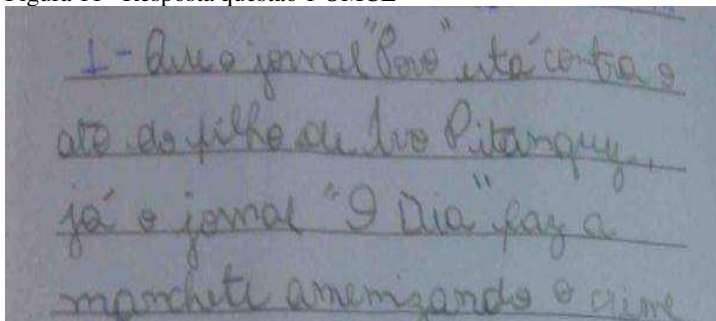 1- Que o jornal "Povo" está contra o
ato do filho de Ivo Pitanguy,
já o jornal "O Dia" faz a
manchete amenizando o crime